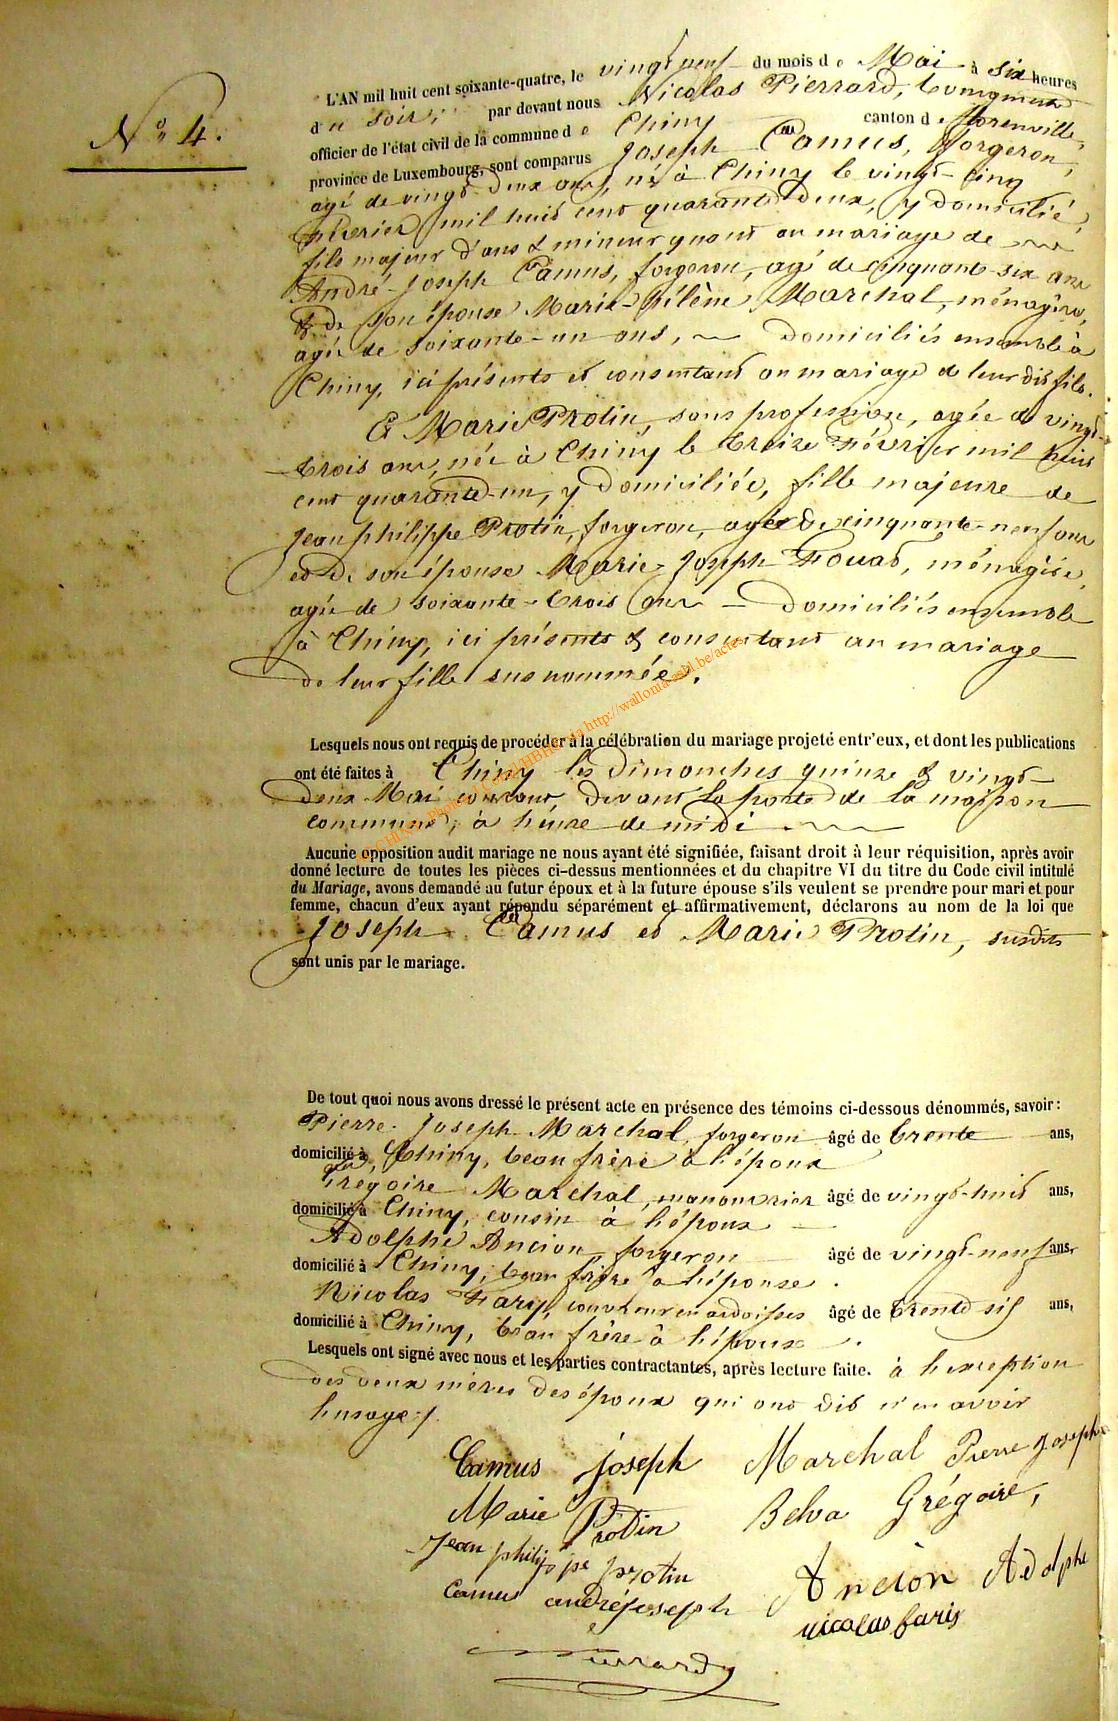 N° 4.
L'AN mil huit cent soixante-quatre, le vingt neuf du mois de Mai à six heures
du soir, par devant nous Nicolas Pierrard, bourgmestre
officier de l'état civil de la commune de Chiny canton de florenville,
province de Luxembourg, sont comparus Joseph Camus, forgeron,
agé de vingt deux ans, né à Chiny le vingt-cinq
février mil huit cent quarante deux, y domicilié,
fils majeur d'ans & mineur quant au mariage de
André-Joseph Camus, forgeron, agé de cinquante-six ans
& de son épouse Marie-hélène Marchal, ménagère,
agée de soixante-un ans, domiciliés ensemble à
Chiny, ici présents et consentant au mariage de leur dit fils.
Et Marie Protin, sans profession, agée de vingt-
trois ans, née à Chiny le treize Février mil huit
cent quarante-un, y domiciliée, fille majeure de
Jean philippe Protin, forgeron, agée de cinquante-neuf ans
et de son épouse Marie-Joseph Fouat, ménagère,
agée de soixante-trois ans domiciliés ensemble
à Chiny, ici présents & consentant au mariage
de leur fille susnommée.
Lesquels nous ont requis de procéder à la célébration du mariage projeté entr'eux, et dont les publications
ont été faites à Chiny les dimanches quinze & vingt-
deux Mai courant, devant la porte de la maison
commune, à heure de midi
Aucune opposition audit mariage ne nous ayant été signifiée, faisant droit à leur réquisition, après avoir
donné lecture de toutes les pièces ci-dessus mentionnées et du chapitre VI du titre du Code civil intitulé
du Mariage, avons demandé au futur époux et à la future épouse s'ils veulent se prendre pour mari et pour
femme, chacun d'eux ayant répondu séparément et affirmativement, déclarons au nom de la loi que
Joseph Camus et Marie Protin, susdits
sont unis par le mariage.
De tout quoi nous avons dressé le présent acte en présence des témoins ci-dessous dénommés, savoir:
Pierre-Joseph Marchal, forgeron âgé de trente ans,
domicilié à Chiny, beau frère à l'époux
Grégoire Marchal, manouvrier âgé de vingt-huit ans,
domicilié à Chiny, cousin à l'époux
Adolphe Ancion, forgeron âgé de vingt-neuf ans,
domicilié à Chiny, beau frère à l'épouse.
Nicolas Farif, couvreur en ardoises âgé de trente six ans,
domicilié à Chiny, beau frère à l'époux.
Lesquels ont signé avec nous et les parties contractantes, après lecture faite. à l'exception
des deux mères des époux qui ont dit n'en avoir
l'usage./.
Camus joseph Marchal Pierre Joseph
Marie Protin Belva Grégoire,
Jean philippe protin
Camus andréjoseph Ancion Adolphe
nicolas faris
Pierrard